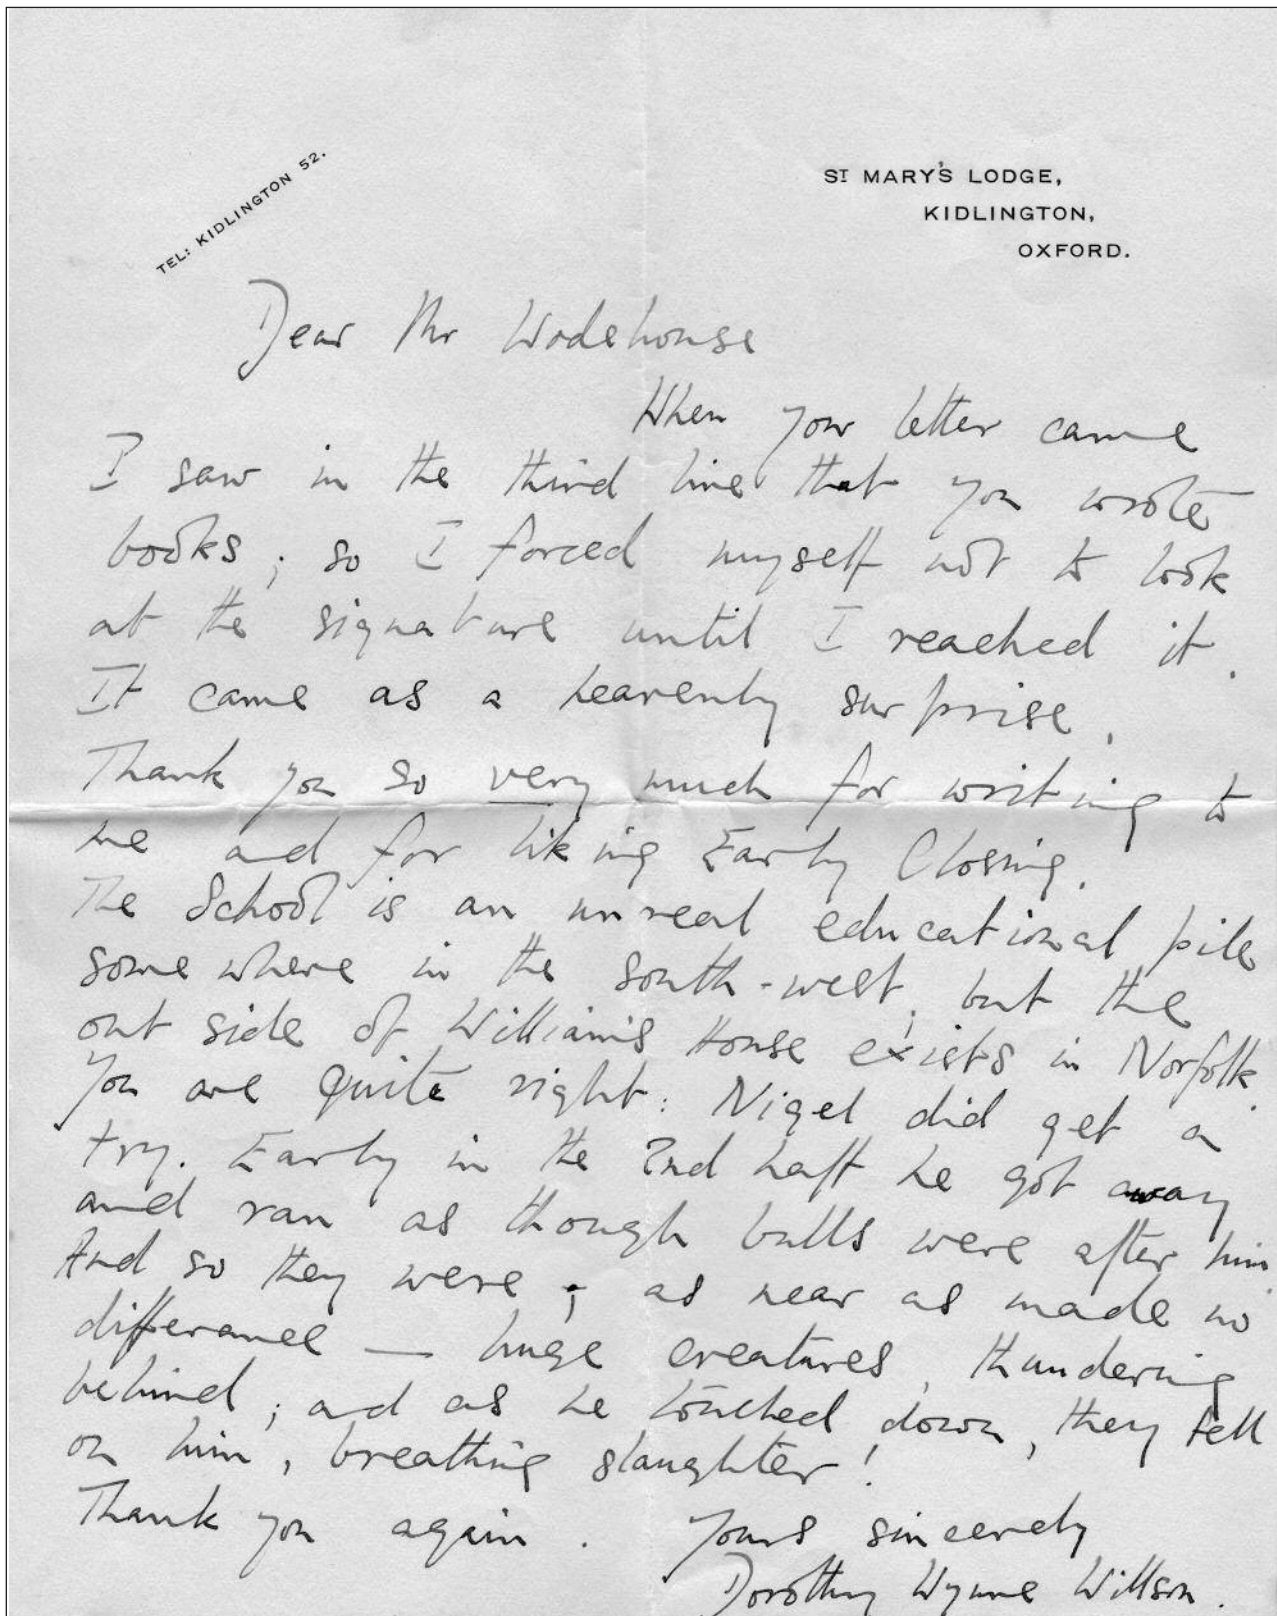 TEL: KIDLINGTON 52.
ST MARY'S LODGE,
KIDLINGTON,
OXFORD.
Dear Mr Wodehouse
When your letter came
I saw in the third line that you wrote
books; so I forced myself not to look
at the signature until I reached it.
It came as a heavenly surprise.
Thank you so very much for writing to
me and for liking Early Closing.
The School is an unreal educational pile
somewhere in the south-west, but the
outside of William's House exists in Norfolk.
You are quite right: Nigel did get a
try. Early in the 2nd half he got away
and ran as though bulls were after him
And so they were; as near as made no
difference — huge creatures, thundering
behind; and as he touched down, they fell
on him, breathing slaughter!
Thank you again. Yours sincerely
Dorothy Wynne Willson.